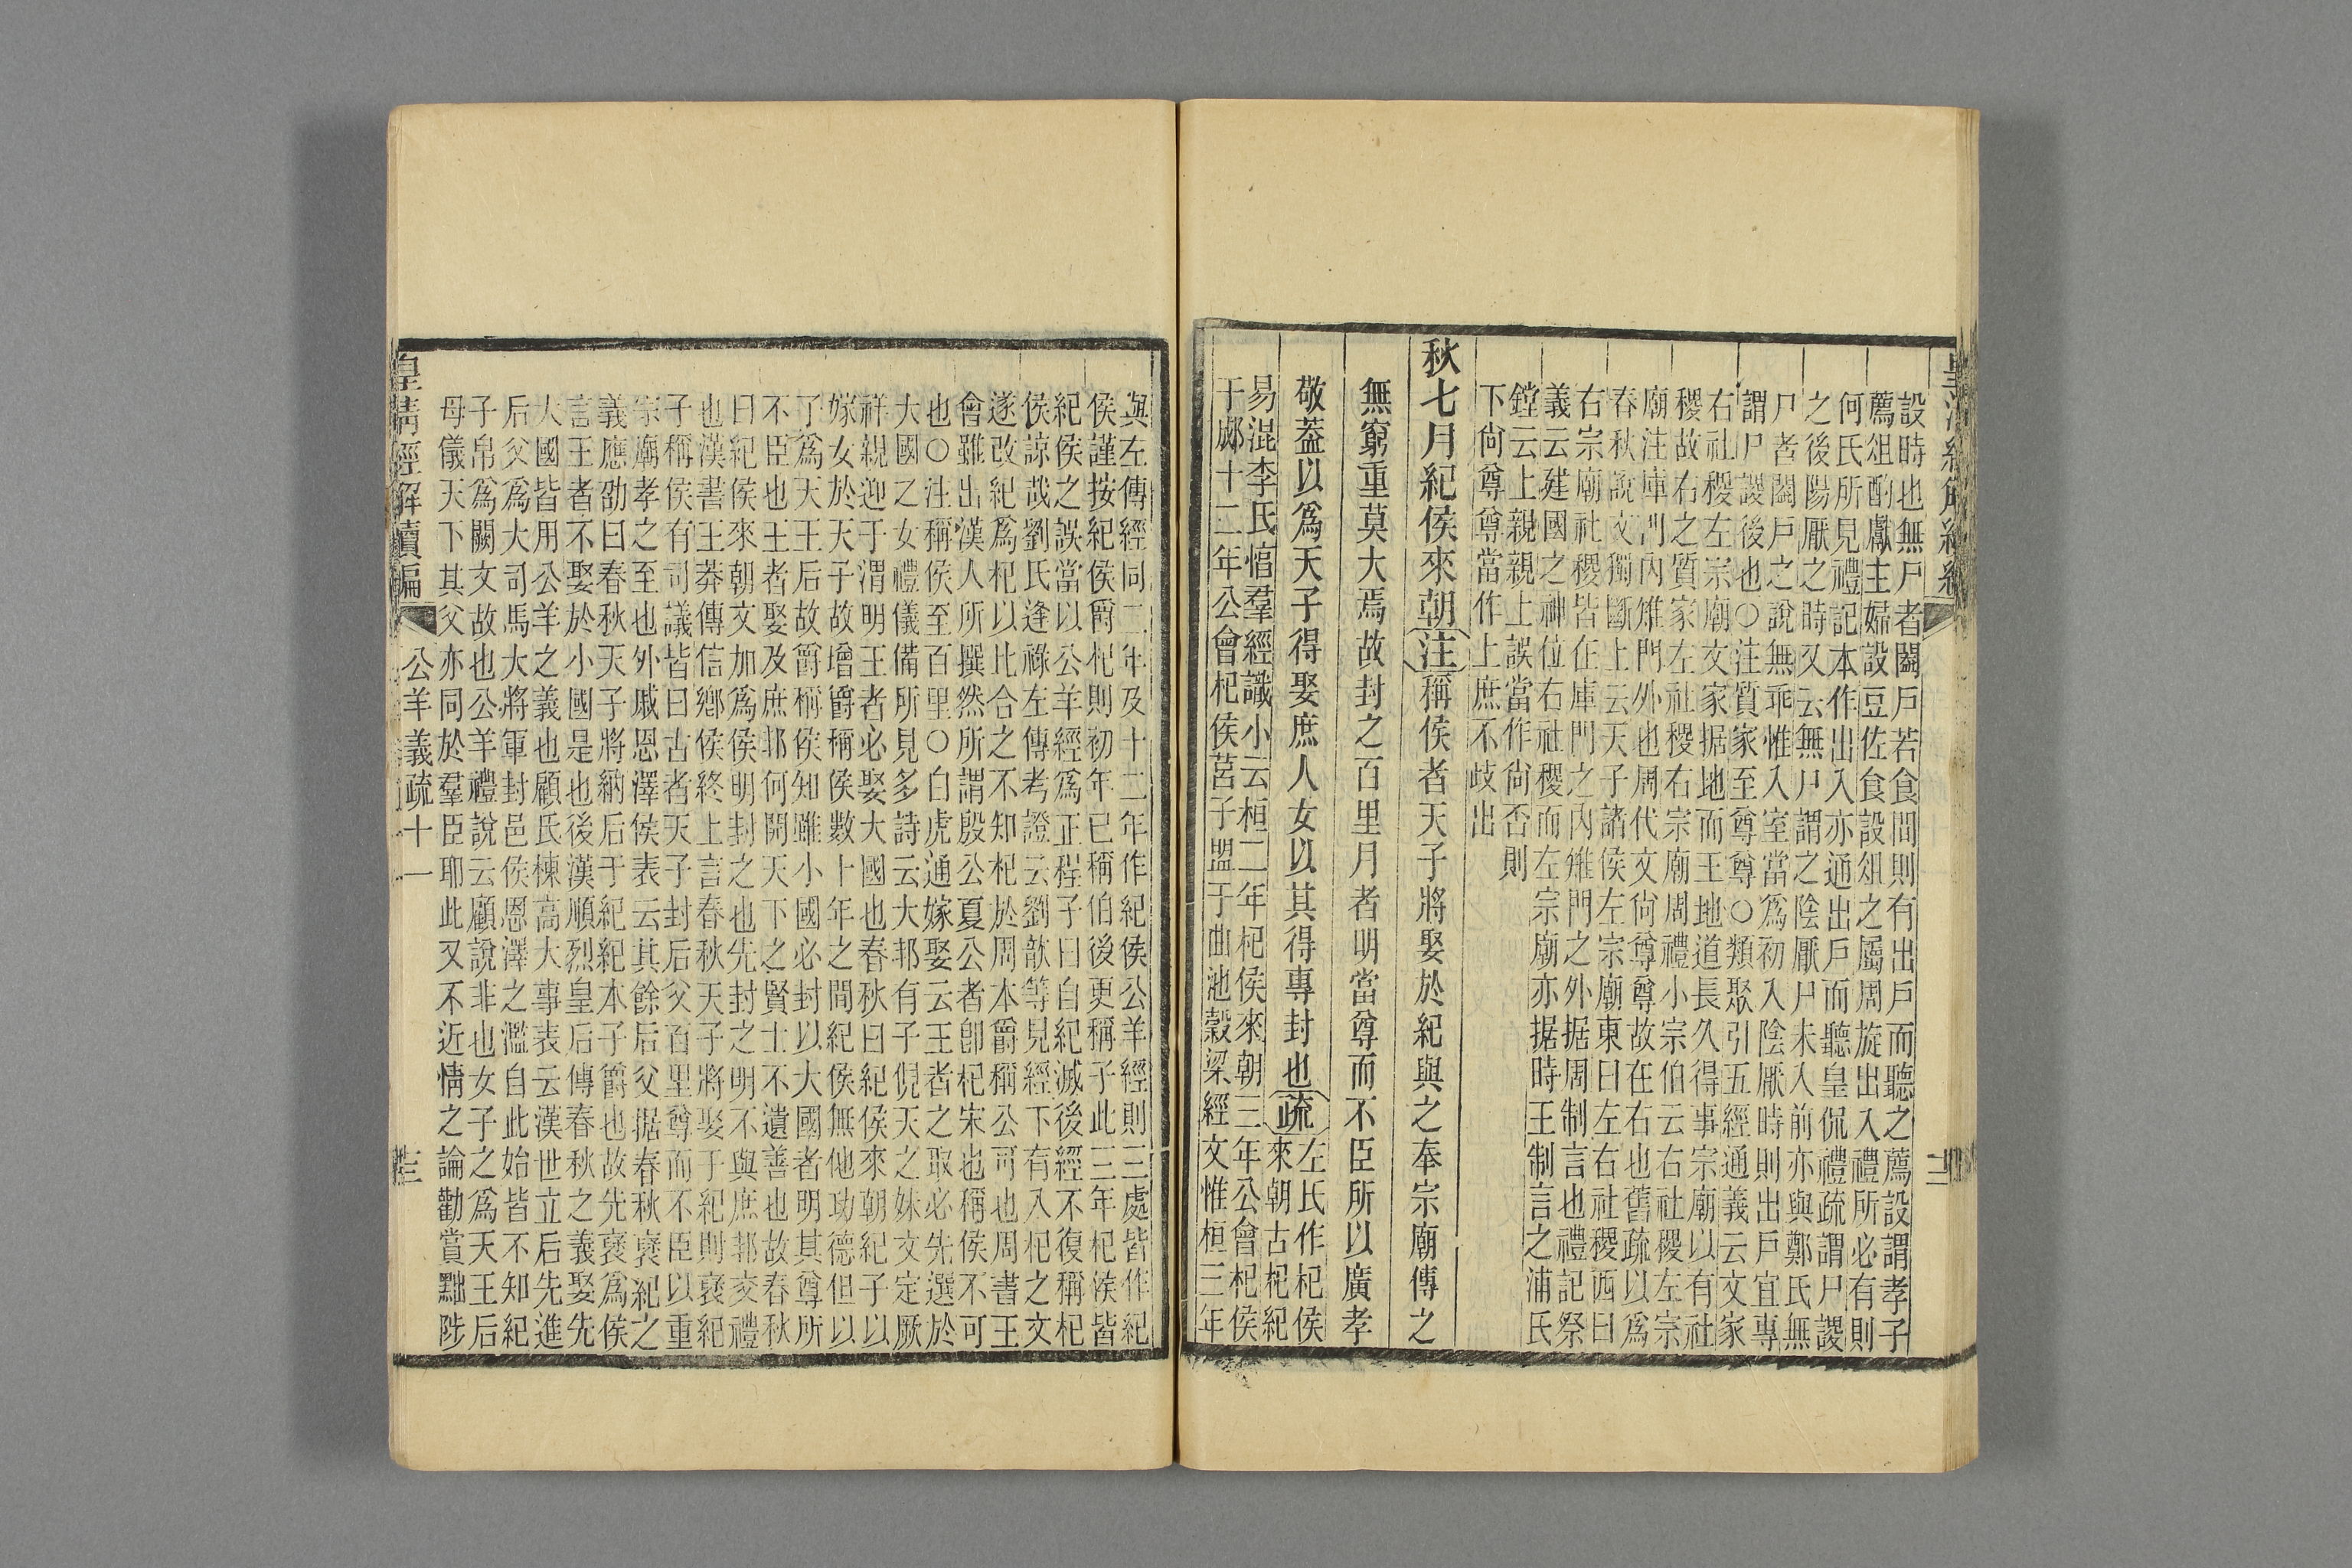 皇清經解續編
設時也無尸者闔戶若食間則有出戶而聽之薦設謂孝子
薦俎酌獻主婦設豆佐食設俎之屬周旋出入禮所必有則
何氏所見禮記本作出入亦通出戶而聽皇侃禮疏謂尸謖
之後陽厭之時又云無尸謂之陰厭尸未入前亦與鄭氏無
尸者闔戶之說無乖惟入室當爲初入陰厭時則出戶宜專
謂尸謖後也○注質家至尊尊○類聚引五經通義云文家
右社稷左宗廟文家据地而王地道長久得事宗廟以有社
稷故右之質家左社稷右宗廟周禮小宗伯云右社稷左宗
廟注庫門內雉門外也周代文尙尊尊故在右也舊疏以爲
春秋說文獨斷上云天子諸侯左宗廟東曰左右社稷西曰
右宗廟社稷皆在庫門之內雉門之外据周制言也禮記祭
義云建國之神位右社稷而左宗廟亦据時王制言之浦氏
鏜云上親親上誤當作尙否則
下尙尊尊當作上庶不歧出
秋七月紀侯來朝注稱侯者天子將娶於紀與之奉宗廟傳之
無窮重莫大焉故封之百里月者明當尊而不臣所以廣孝
敬蓋以爲天子得娶庶人女以其得專封也疏左氏作杞侯
來朝古杞紀
易混李氏惇羣經識小云桓二年杞侯來朝三年公會杞侯
于郕十二年公會杞侯莒子盟于曲池穀梁經文惟桓三年
與左傳經同二年及十二年作紀侯公羊經則三處皆作紀
侯謹按紀侯爵杞則初年已稱伯後更稱子此三年杞侯皆
紀侯之誤當以公羊經爲正程子曰自紀滅後經不復稱杞
侯諒哉劉氏逢祿左傳考證云劉歆等見經下有入杞之文
遂改紀爲杞以比合之不知杞於周本爵稱公可也周書王
會雖出漢人所撰然所謂殷公夏公者卽杞宋也稱侯不可
也○注稱侯至百里○白虎通嫁娶云王者之取必先選於
大國之女禮儀備所見多詩云大邦有子俔天之妹文定厥
祥親迎于渭明王者必娶大國也春秋曰紀侯來朝紀子以
嫁女於天子故增爵稱侯數十年之間紀侯無他功德但以
了爲天王后故爵稱侯知雖小國必封以大國者明其尊所
不臣也王者娶及庶邦何開天下之賢士不遺善也故春秋
曰紀侯來朝文加爲侯明封之也先封之明不與庶邦交禮
也漢書王莽傳信鄉侯終上言春秋天子將娶于紀則襃紀
子稱侯有司議皆曰古者天子封后父百里尊而不臣以重
宗廟孝之至也外戚恩澤侯表云其餘后父据春秋襃紀之
義應劭曰春秋天子將納后于紀紀本子爵也故先襃爲侯
言王者不娶於小國是也後漢順烈皇后傳春秋之義娶先
大國皆用公羊之義也顧氏棟高大事表云漢世立后先進
后父爲大司馬大將軍封邑侯恩澤之濫自此始皆不知紀
子帛爲闕文故也公羊禮說云顧說非也女子之爲天王后
母儀天下其父亦同於羣臣耶此又不近情之論勸賞黜陟
皇清經解續編
公羊義疏十一